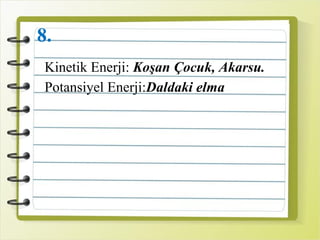 8.
Kinetik Enerji: Koşan Çocuk, Akarsu.
Potansiyel Enerji:Daldaki elma